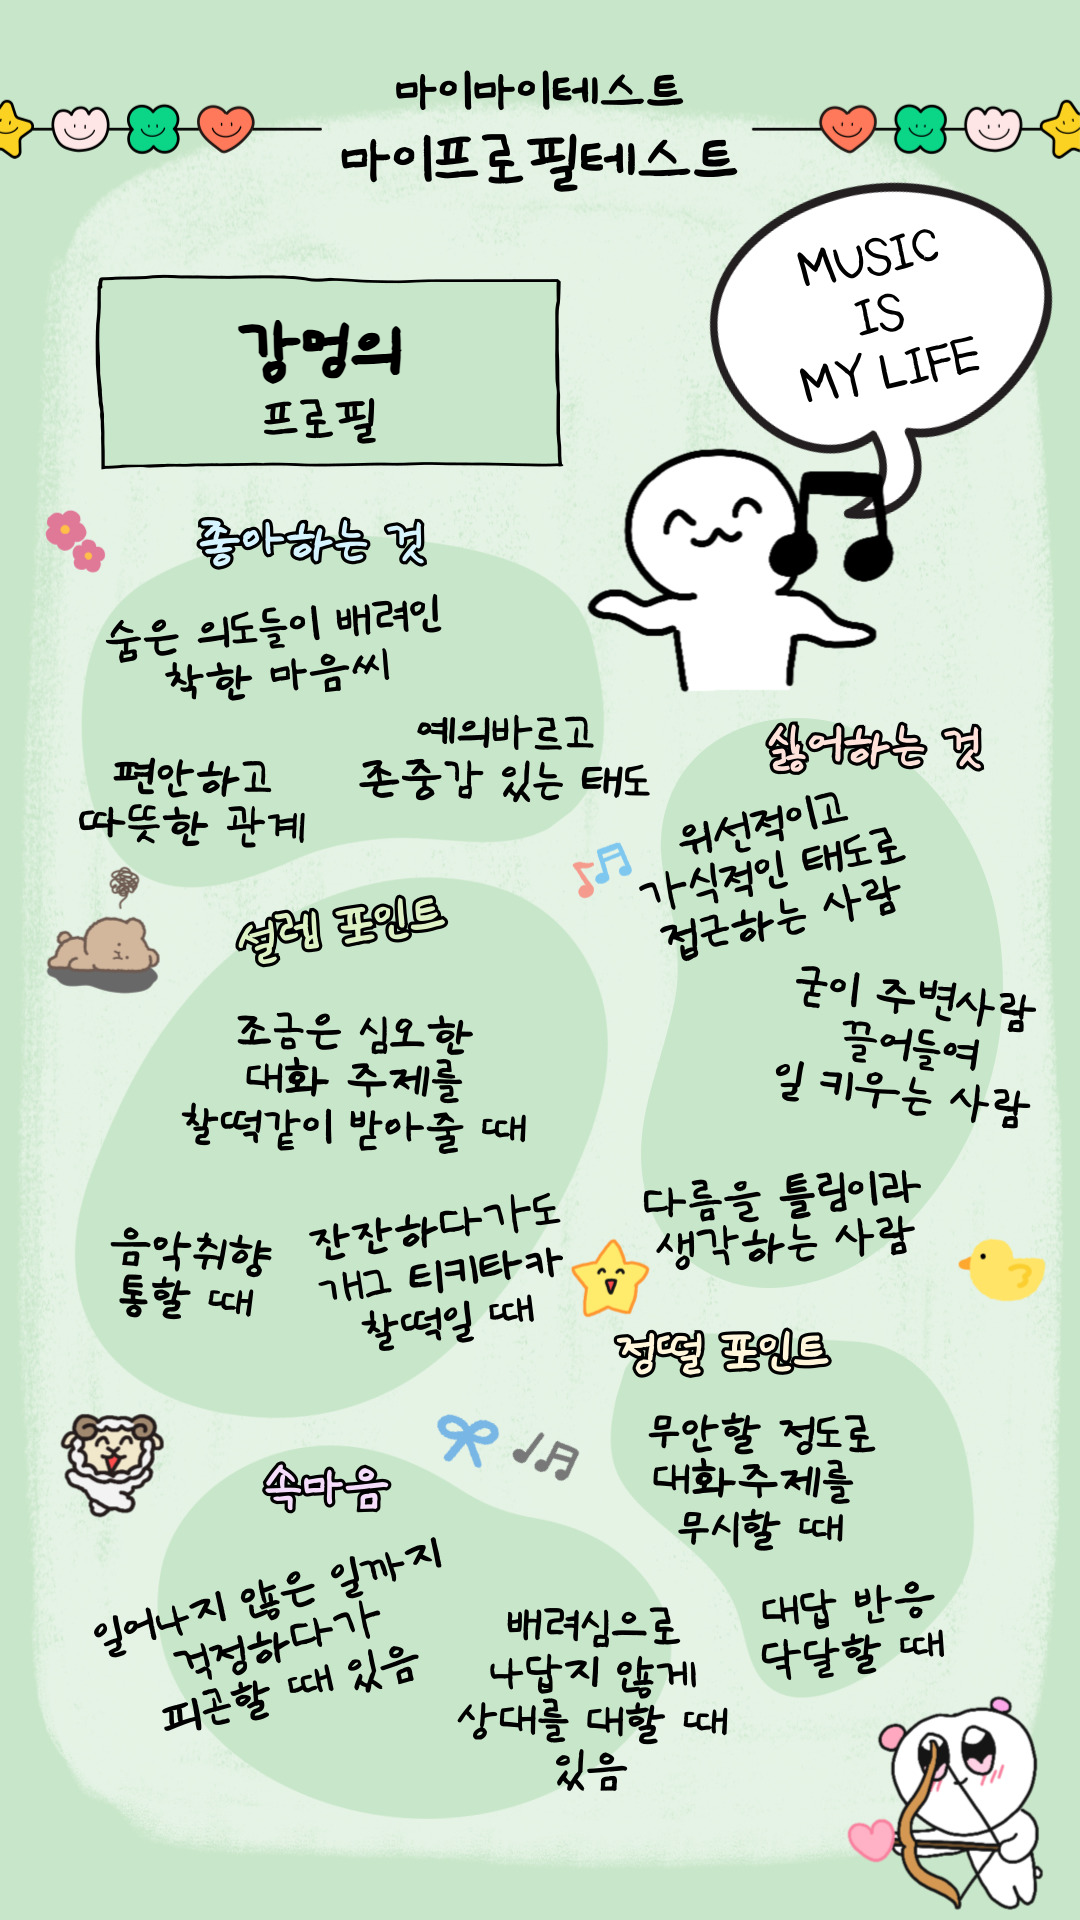 마이마이테스트
마이프로필테스트
MUSIC
IS
MY LIFE
강멍의
프로필
좋아하는 것
숨은 의도들이 배려인
착한 마음씨
예의바르고
존중감 있는 태도
편안하고
따뜻한 관계
싫어하는 것
위선적이고
가식적인 태도로
접근하는 사람
굳이 주변사람
끌어들여
일 키우는 사람
다름을 틀림이라
생각하는 사람
설렘 포인트
조금은 심오한
대화 주제를
찰떡같이 받아줄 때
음악취향
통할 때
잔잔하다가도
개그 티키타카
찰떡일 때
정떨 포인트
무안할 정도로
대화주제를
무시할 때
대답 반응
닥달할 때
속마음
일어나지 않은 일까지
걱정하다가
피곤할 때 있음
배려심으로
나답지 않게
상대를 대할 때
있음